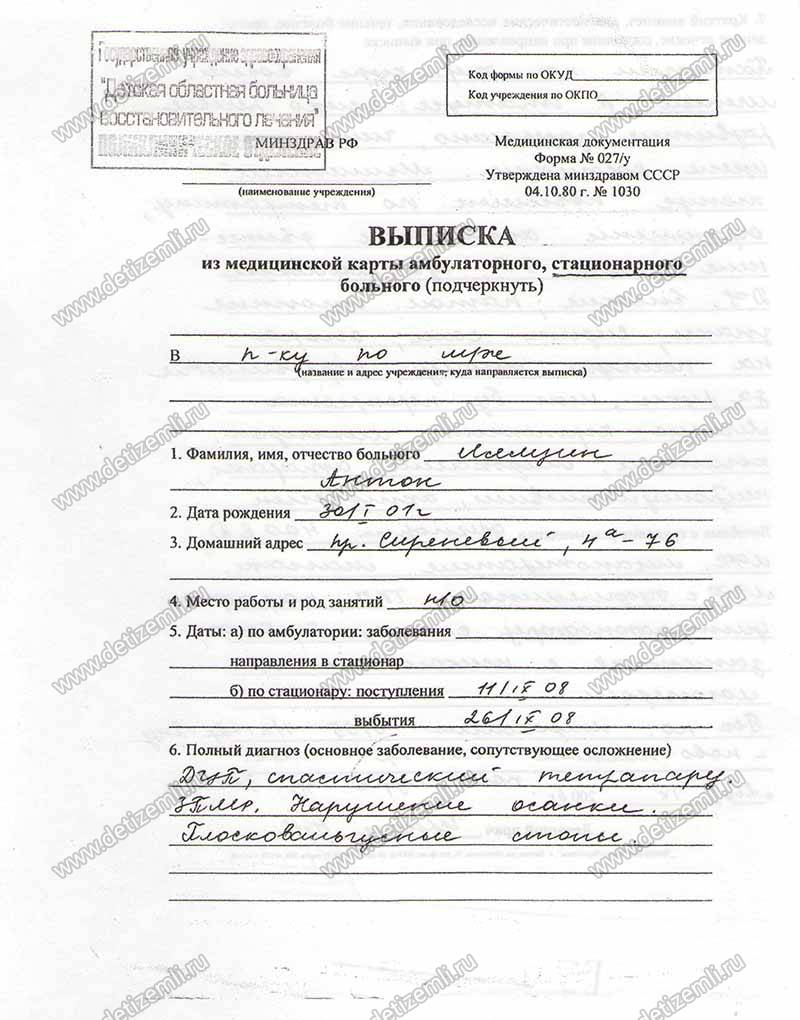 Государственное учреждение здравоохранения
"Детская областная больница
восстановительного лечения"
Код формы по ОКУД
Код учреждения по ОКПО
МИНЗДРАВ РФ
(наименование учреждения)
Медицинская документация
Форма № 027/у
Утверждена минздравом СССР
04.10.80 г. № 1030
ВЫПИСКА
из медицинской карты амбулаторного, стационарного
больного (подчеркнуть)
В п-ку по м/ж
(название и адрес учреждения, куда направляется выписка)
1. Фамилия, имя, отчество больного
Антон
2. Дата рождения 30/I 01г
3. Домашний адрес пр. Сиреневый, 4а-76
4. Место работы и род занятий н/о
5. Даты: а) по амбулатории: заболевания
направления в стационар
б) по стационару: поступления 11/IX 08
выбытия 26/IX 08
6. Полный диагноз (основное заболевание, сопутствующее осложнение)
ДЦП, спастический тетрапарез.
ЗПМР. Нарушение осанки.
Плосковальгусные стопы.
www.detizemli.ru